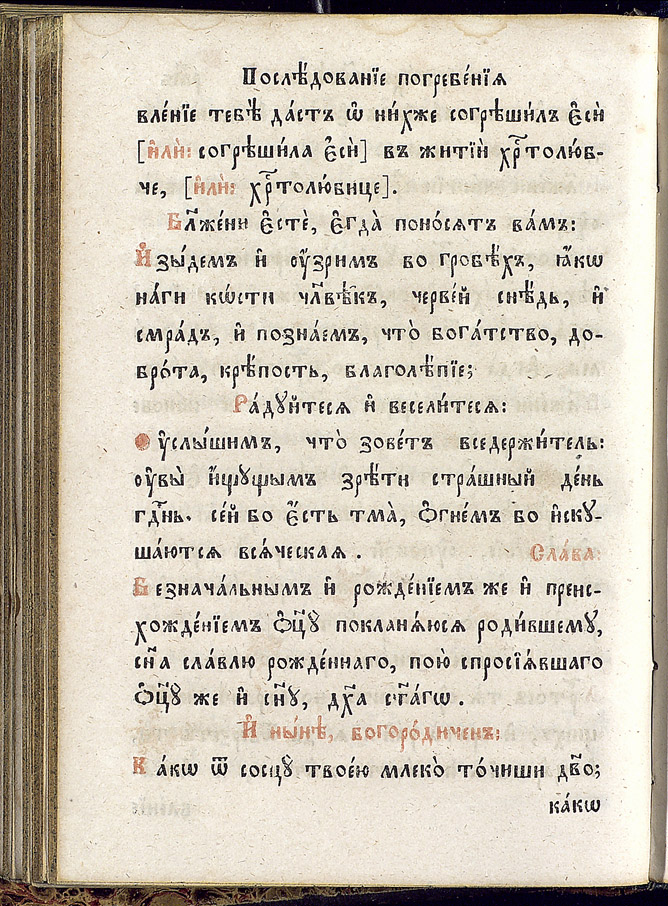 Послѣ́дованїе погребе́нїѧ
вле́нїе тебѣ̀ да́стъ ѡ҆ ни́хже согрѣши́лъ є҆сѝ
[и҆лѝ: согрѣши́ла є҆сѝ] въ житїѝ хрⷭ҇толю́б-
че, [и҆лѝ: хрⷭ҇толю́бице].
Бл҃же́ни є҆стѐ, є҆гда̀ поно́сѧтъ ва́мъ:
И҆зы́демъ и҆ ᲂу҆́зримъ во гробѣ́хъ, ꙗ҆́кѡ
на́ги кѡ́сти чл҃вѣ́къ, черве́й снѣ́дь, и҆
смра́дъ, и҆ позна́емъ, что̀ бога́тство, до-
бро́та, крѣ́пость, благолѣ́пїе;
Ра́дꙋйтесѧ и҆ весели́тесѧ:
Оу҆слы́шимъ, что̀ зове́тъ вседержи́тель:
ᲂу҆вы̀ и҆́щꙋщымъ зрѣ́ти стра́шный де́нь
гдⷭ҇нь. се́й бо є҆́сть тма̀, ѻ҆гне́мъ бо и҆скꙋ-
ша́ютсѧ всѧ́ческаѧ. Сла́ва:
Безнача́льнымъ и҆ рожде́нїемъ же и҆ преис-
хожде́нїемъ ѻ҆ц҃ꙋ̀ покланѧ́юсѧ роди́вшемꙋ,
сн҃а сла́влю рожде́ннаго, пою̀ спросїѧ́вшаго
ѻ҆ц҃ꙋ́ же и҆ сн҃ꙋ, дх҃а ст҃а́гѡ.
И҆ ны́нѣ, богоро́диченъ:
Ка́кѡ ѿ сосцꙋ̀ твоє́ю млеко̀ то́чиши дв҃о;
ка́кѡ